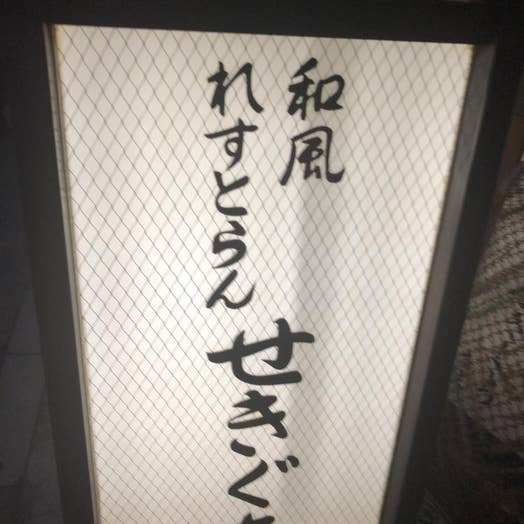 和風
れすとらん
せきぐ